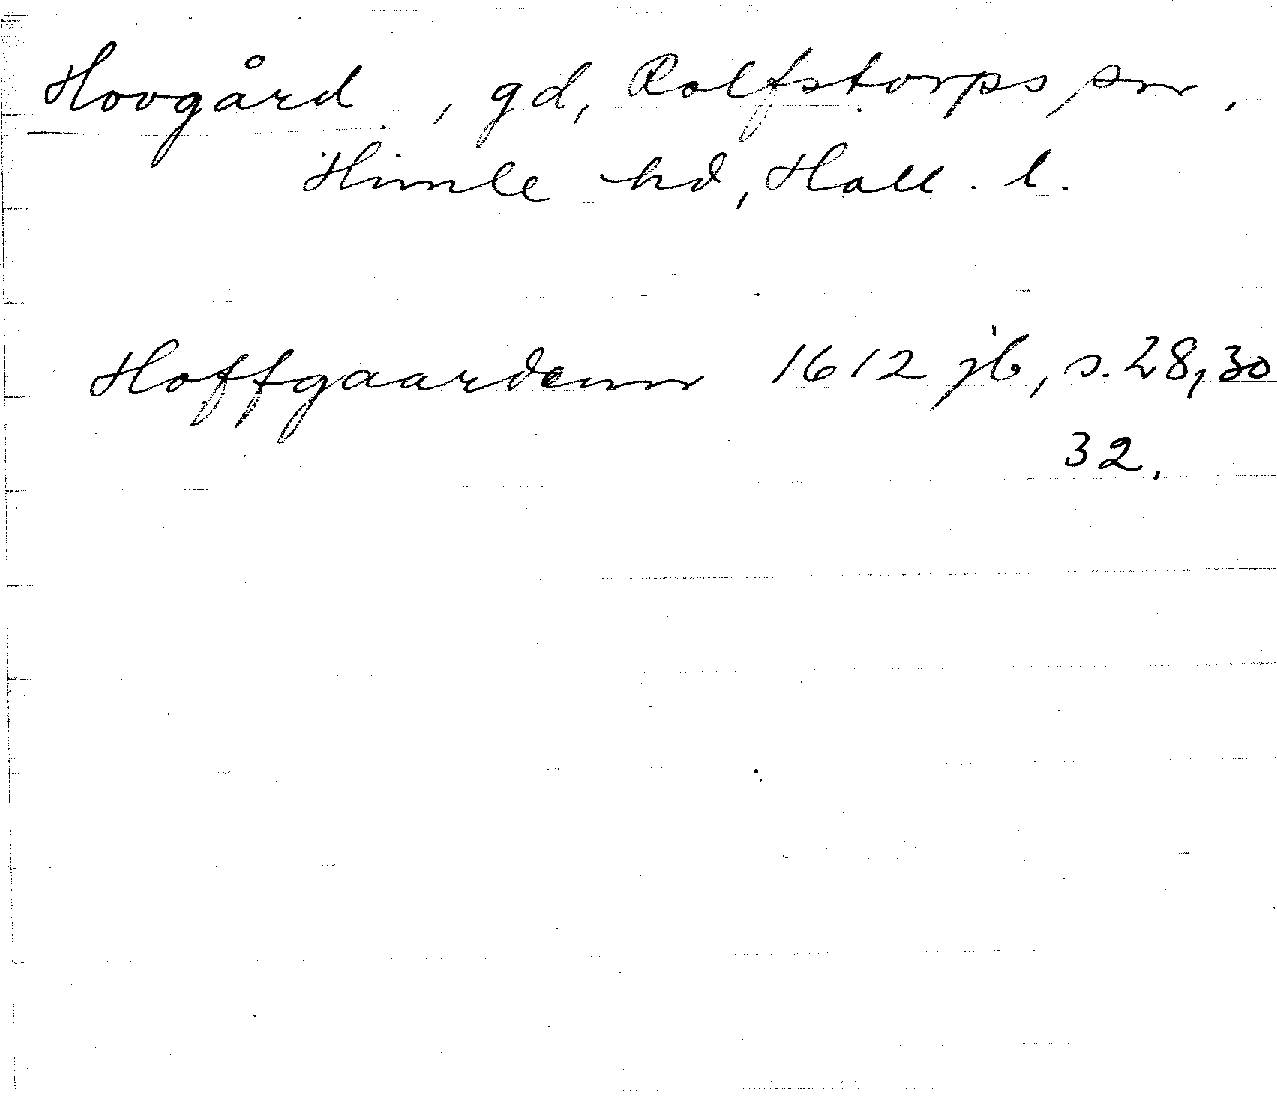 Hovgård, gd, Rolfstorps sn,
Himle hd, Hall. l.
Hoffgaardenn 1612 jb, s. 28, 30
32.